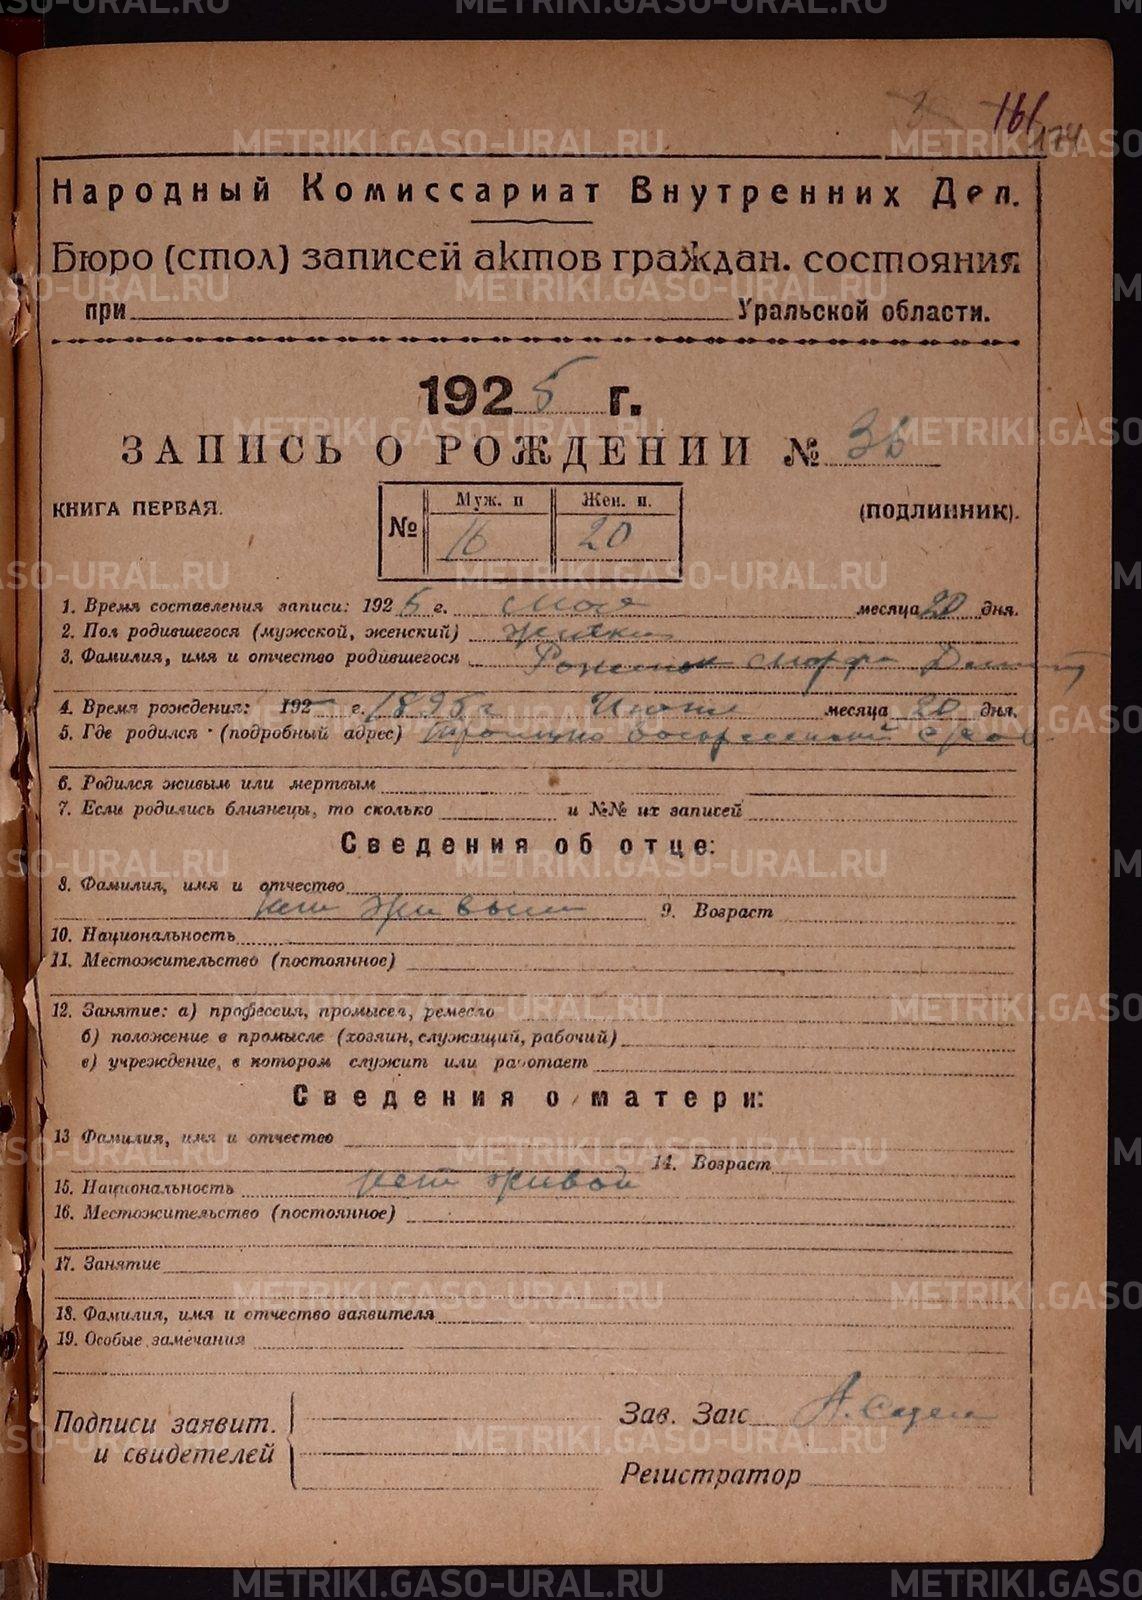 161
174
Народный Комиссариат Внутренних Дел.
Бюро (стол) записей актов граждан. состояния
при Уральской области.
1925 г.
ЗАПИСЬ О РОЖДЕНИИ № 36
КНИГА ПЕРВАЯ. (ПОДЛИННИК).
№ Муж. п Жен. п.
16 20
1. Время составления записи: 1925 г. Мая месяца 20 дня.
2. Пол родившегося (мужской, женский)
3. Фамилия, имя и отчество родившегося Марфа
4. Время рождения: 192 г. 1895 г месяца 20 дня.
5. Где родился (подробный адрес)
6. Родился живым или мертвым
7. Если родились близнецы, то сколько и №№ их записей
Сведения об отце:
8. Фамилия, имя и отчество
нет живым 9. Возраст
10. Национальность
11. Местожительство (постоянное)
12. Занятие: а) профессия, промысел, ремесло
б) положение в промысле (хозяин, служащий, рабочий)
в) учреждение, в котором служит или работает
Сведения о матери:
13 Фамилия, имя и отчество
14. Возраст
15. Национальность нет живой
16. Местожительство (постоянное)
17. Занятие
18. Фамилия, имя и отчество заявителя
19. Особые замечания
Подписи заявит. Зав. Загс
и свидетелей
Регистратор
METRIKI.GASO-URAL.RU